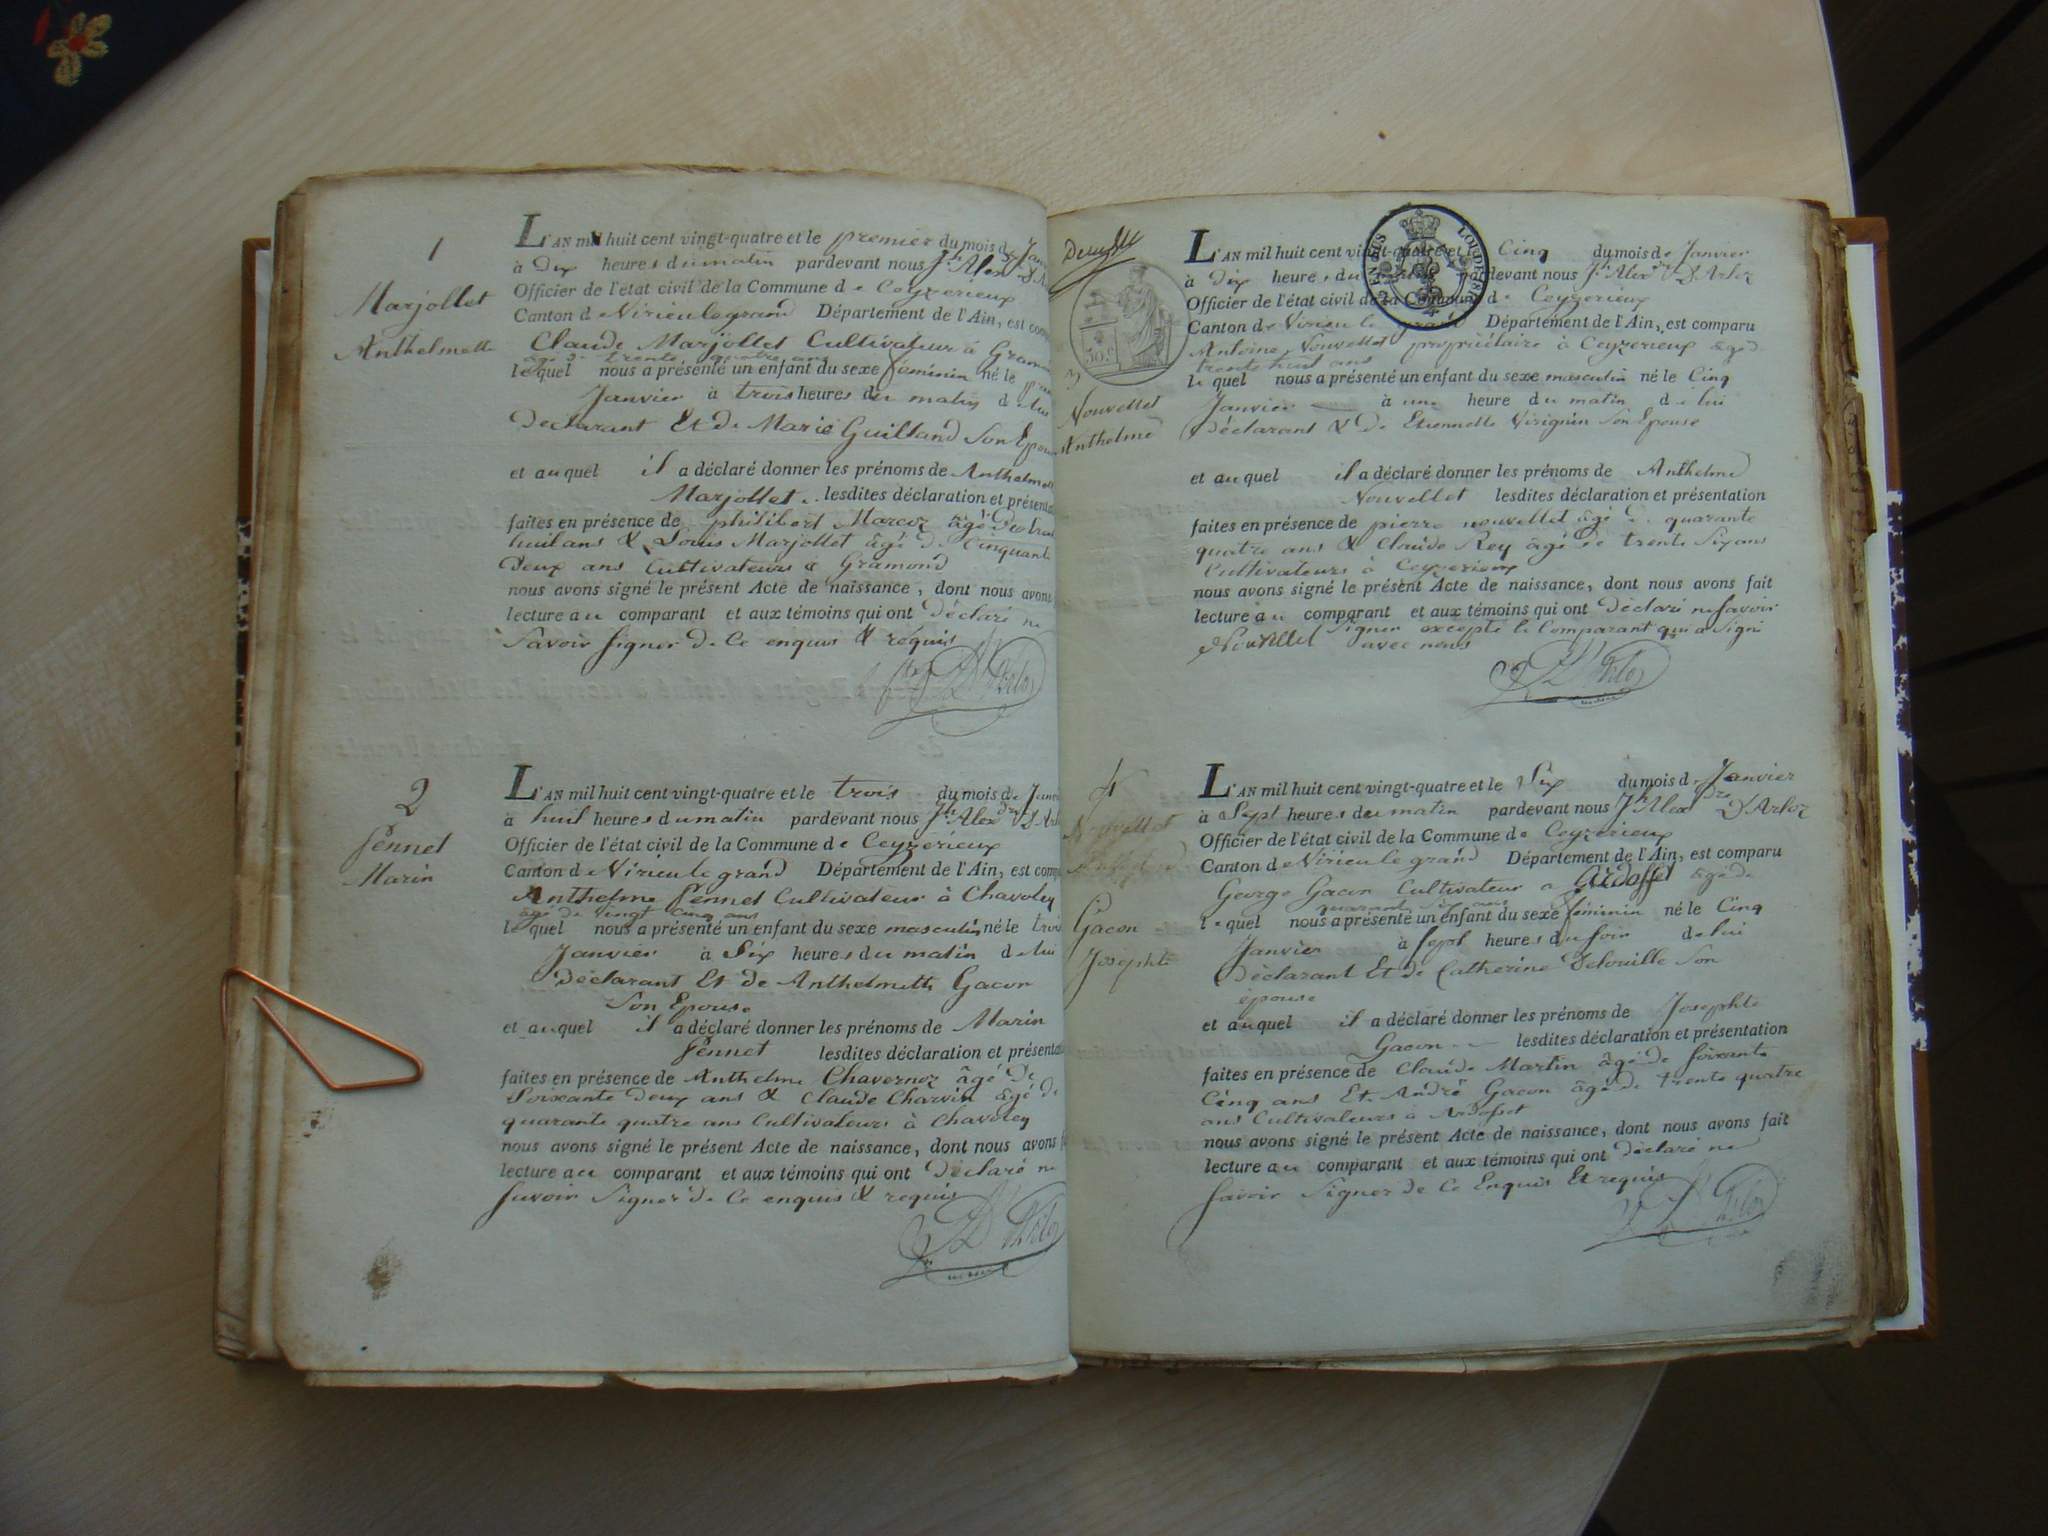 1
Marjollet
Anthelmette
L'AN mil huit cent vingt-quatre et le premier du mois de Janv
à Dix heures du matin pardevant nous Jh Alexdre D'A
Officier de l'état civil de la Commune de Ceyzerieux
Canton de Virieu le grand Département de l'Ain, est comp
Claude Marjollet Cultivateur à Gramon
âgé de trente quatre ans
lequel nous a présenté un enfant du sexe féminin né le
Janvier à trois heures du matin de lui
Déclarant Et de Marie Guilland Son Epouse
et auquel il a déclaré donner les prénoms de Anthelmet
Marjollet lesdites déclaration et présenta
faites en présence de philibert Marcoz âgé de trent
huit ans & Louis Marjollet âgé de Cinquante
Deux ans Cultivateurs à Gramond
nous avons signé le présent Acte de naissance, dont nous avons
lecture au comparant et aux témoins qui ont Déclaré ne
Savoir signer de Ce enquis & requis
D'Arloz
2
Pennet
Marin
L'AN mil huit cent vingt-quatre et le trois du mois de Janv
à huit heures du matin pardevant nous Jh Alexdre D'Arl
Officier de l'état civil de la Commune de Ceyzérieux
Canton de Virieu le grand Département de l'Ain, est comp
Anthelme Pennet Cultivateur à Chavoley
âgé de vingt cinq ans
lequel nous a présenté un enfant du sexe masculin né le trois
Janvier à Six heures du matin de lui
Déclarant Et de Anthelmette Gacon
Son Epouse
et auquel il a déclaré donner les prénoms de Marin
Pennet lesdites déclaration et présenta
faites en présence de Anthelme Chavernoz âgé De
Soixante deux ans & Claude Charvin âgé de
quarante quatre ans Cultivateurs à Chavoley
nous avons signé le présent Acte de naissance, dont nous avons f
lecture au comparant et aux témoins qui ont Déclaré ne
Savoir Signer de Ce enquis & requis
D'Arloz
30.c
3
Nouvellet
Anthelme
L'AN mil huit cent vingt-quatre et le Cinq du mois de Janvier
à dix heures du matin pardevant nous Jh Alexdre D'Arloz
Officier de l'état civil de la Commune de Ceyzerieux
Canton de Virieu le grand Département de l'Ain, est comparu
Antoine Nouvellet propriétaire à Ceyzerieux âgé de
trente huit ans
lequel nous a présenté un enfant du sexe masculin né le Cinq
Janvier à une heure du matin de lui
Déclarant & De Etiennette Virignin Son Epouse
et auquel il a déclaré donner les prénoms de Anthelme
Nouvellet lesdites déclaration et présentation
faites en présence de pierre nouvellet âgé de quarante
quatre ans & Claude Rey âgé de trente Six ans
Cultivateurs à Ceyzerieux
nous avons signé le présent Acte de naissance, dont nous avons fait
lecture au comparant et aux témoins qui ont Déclaré ne Savoir
Signer excepté le Comparant qui a Signé
Nouvellet avec nous
D'Arloz
4
Nouvellet
Gacon
Josephte
L'AN mil huit cent vingt-quatre et le Six du mois de Janvier
à Sept heures du matin pardevant nous Jh Alexdre D'Arloz
Officier de l'état civil de la Commune de Ceyzerieux
Canton de Virieu le grand Département de l'Ain, est comparu
George Gacon Cultivateur à Ardosset âgé de
quarante six ans
lequel nous a présenté un enfant du sexe féminin né le Cinq
Janvier à Sept heures du Soir de lui
Déclarant Et de Catherine Belouille Son
épouse
et auquel il a déclaré donner les prénoms de Josephte
Gacon lesdites déclaration et présentation
faites en présence de Claude Martin âgé de Soixante
Cinq ans Et André Gacon âgé de trente quatre
ans Cultivateurs à Ardosset
nous avons signé le présent Acte de naissance, dont nous avons fait
lecture au comparant et aux témoins qui ont Déclaré ne
Savoir Signer de Ce Enquis Et requis
D'Arloz